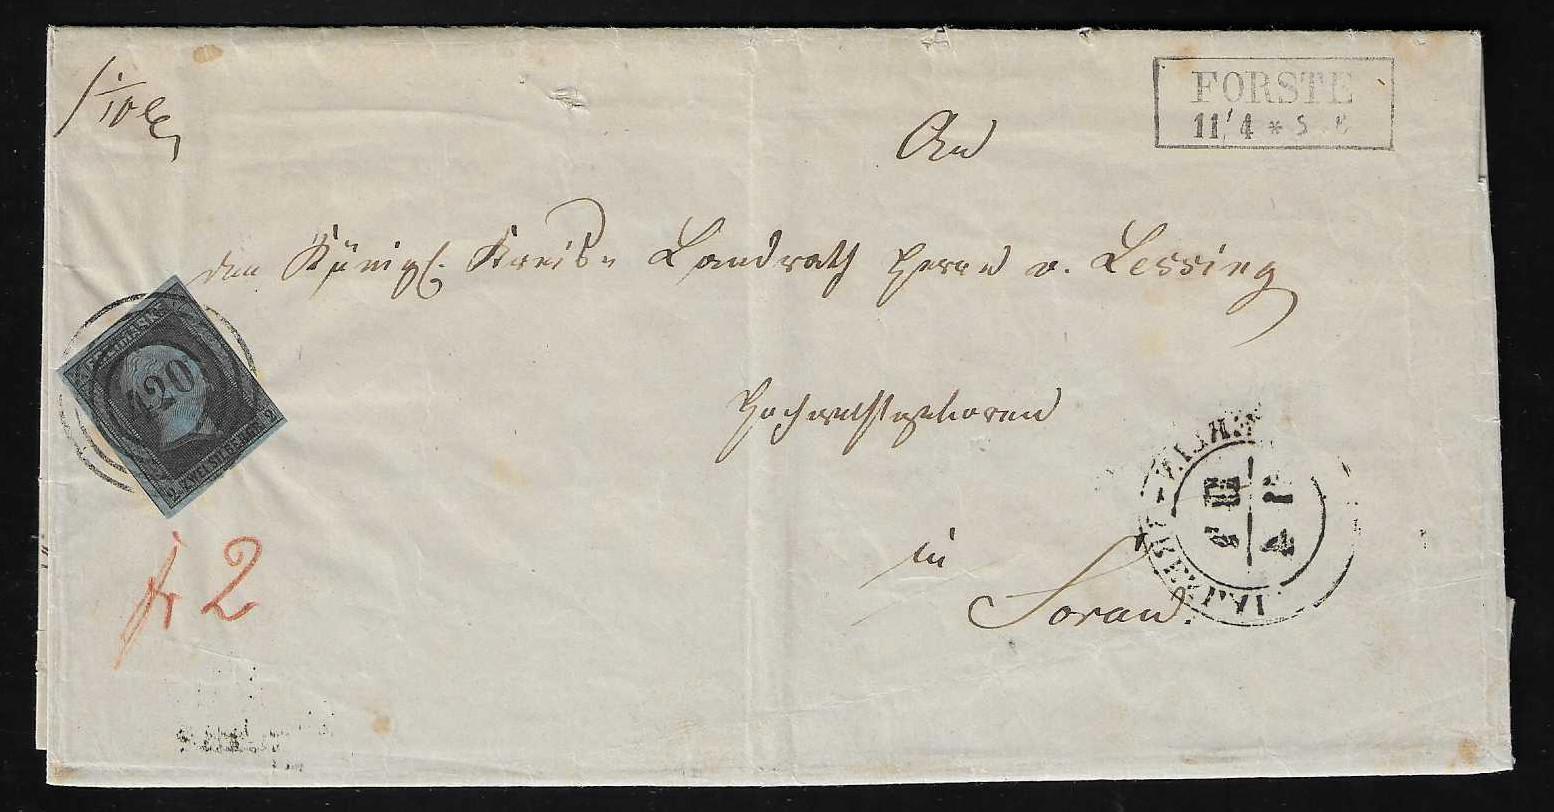 FORSTE
11/4 * 5
An
den Königl. Kreis-
Landrath Herrn v. Lessing
Hochwohlgeboren
in
Sorau.
420
2 ZWEI SILBERGR. 2
fr 2